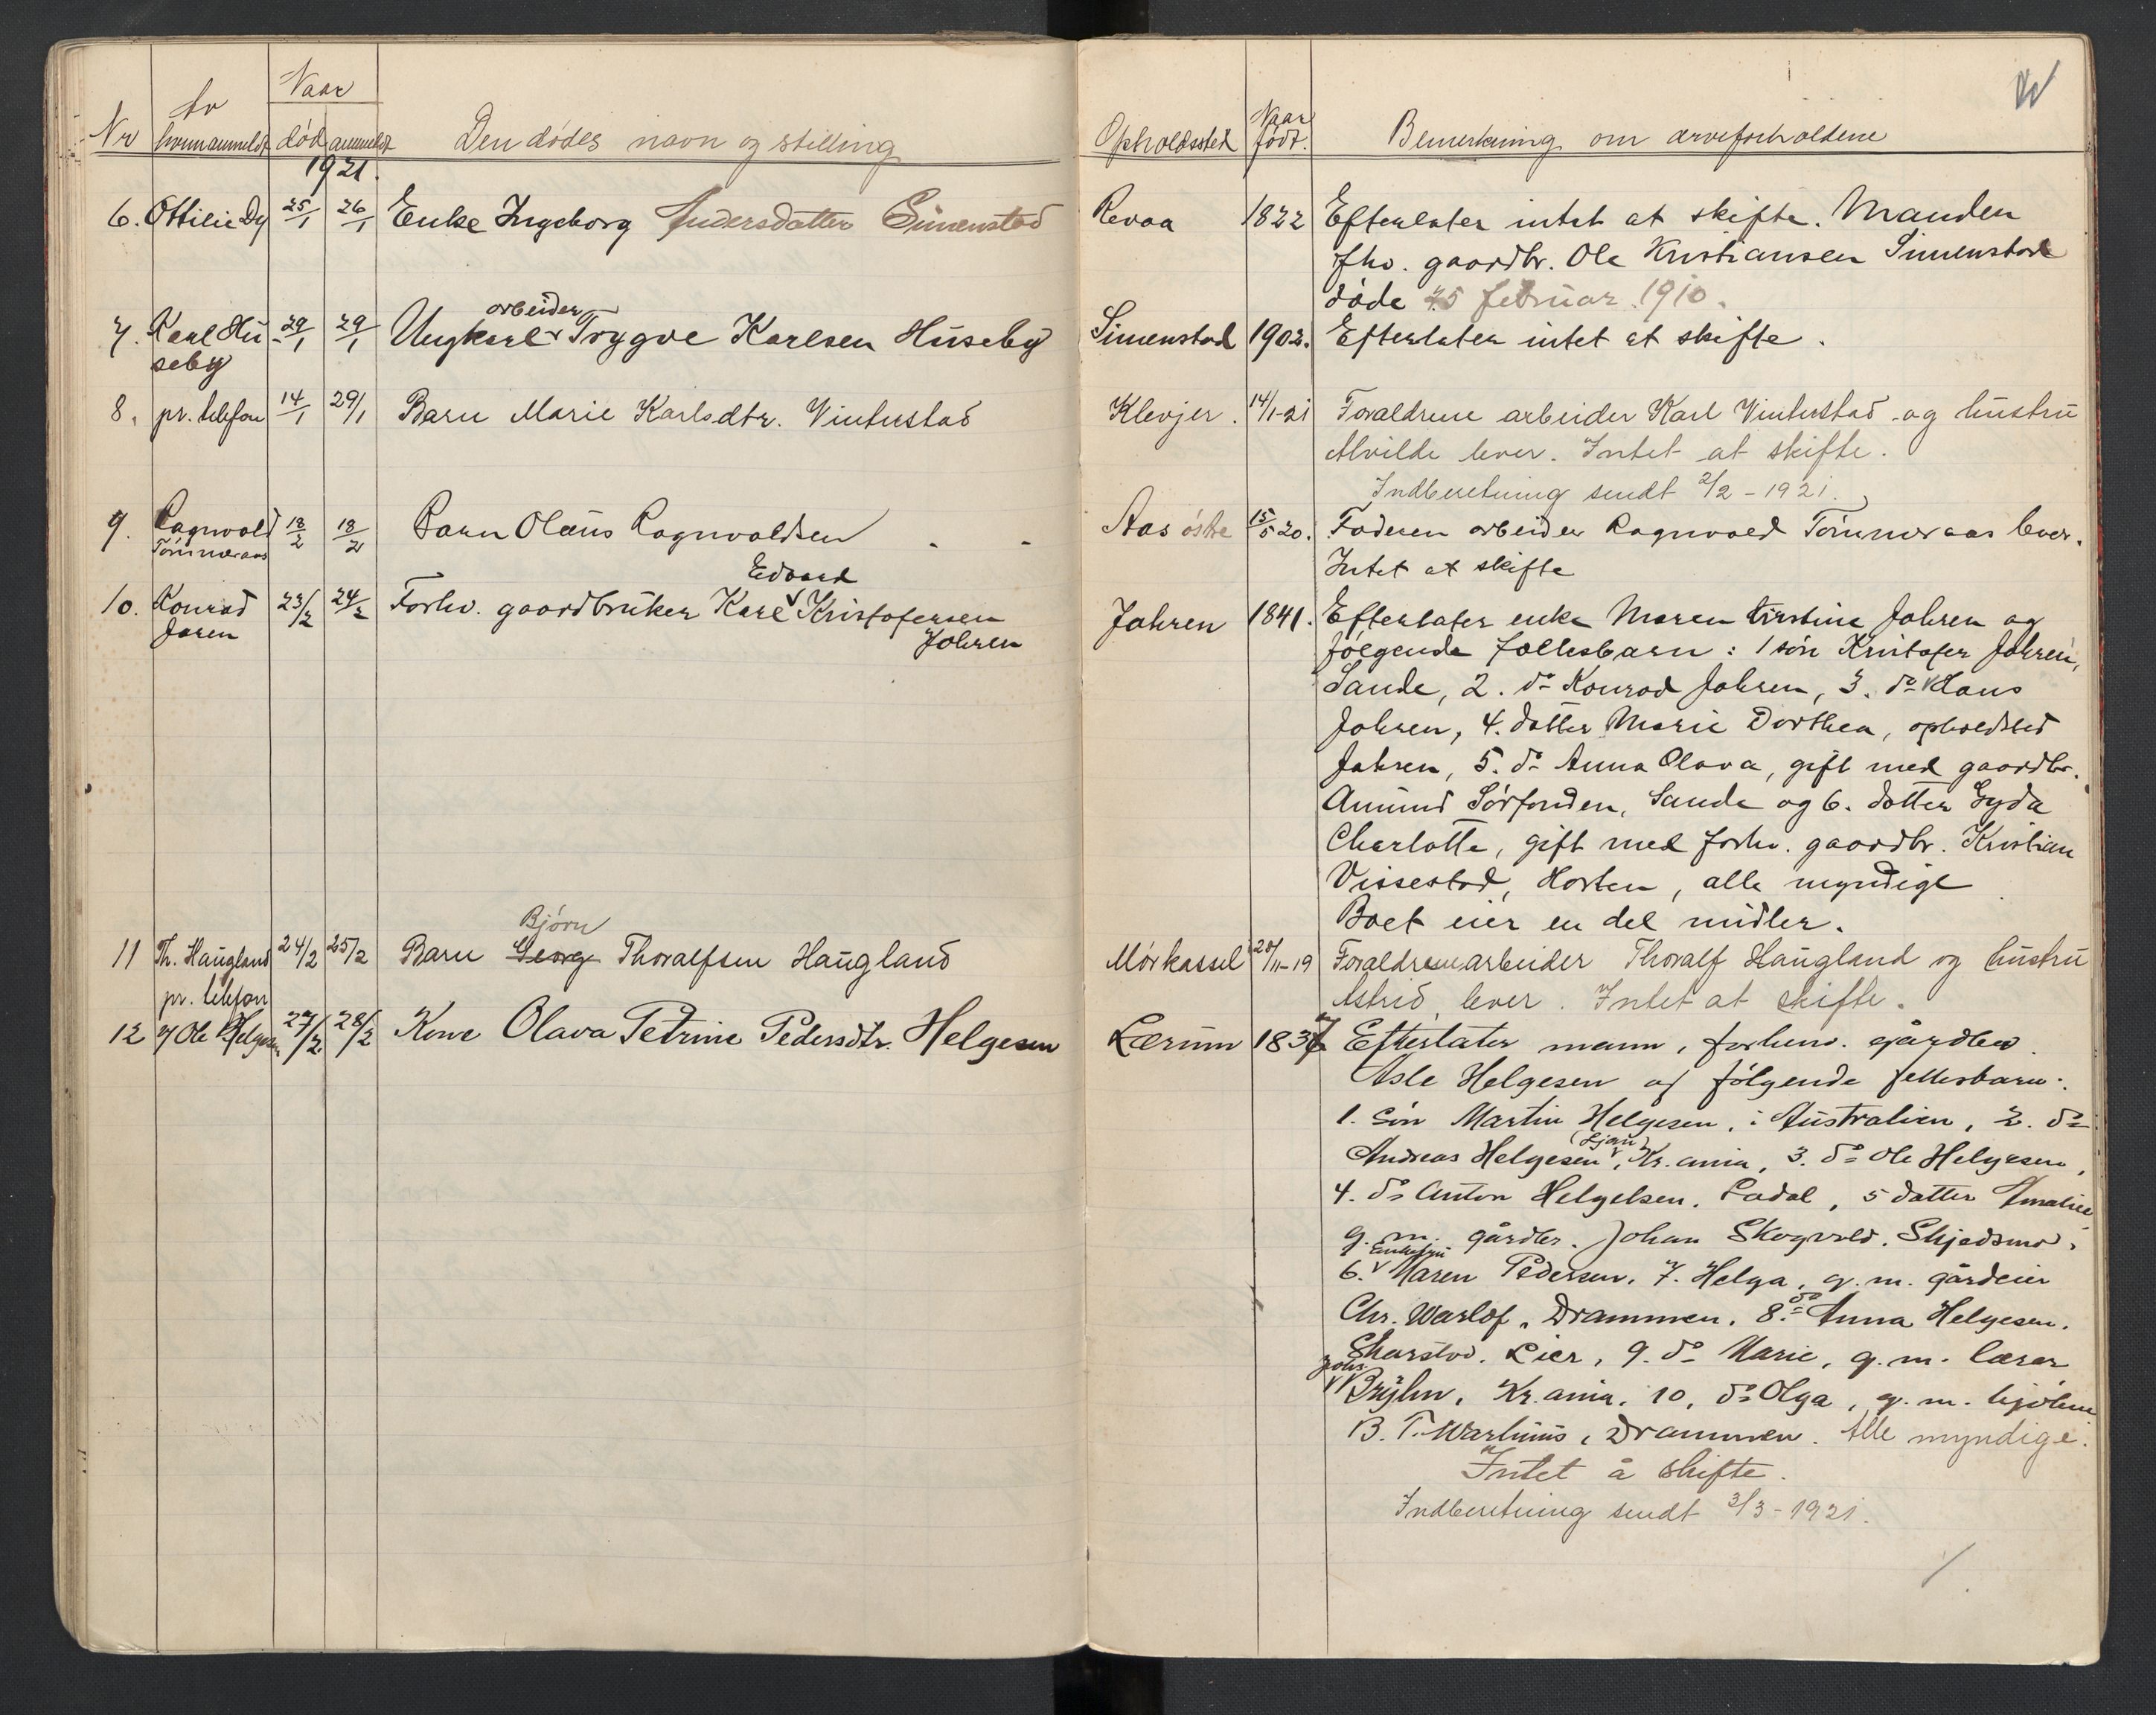 Nr
Av
hvem anmeldt
Naar
død
anmeldt
Den dødes navn og stilling
Opholdssted
Naar født.
Bemerkning om arveforholdene
1921.
6. Ottilie Dy 25/1 26/1 Enke Ingeborg Andersdatter Simenstad Revaa 1822 Efterlater intet at skifte. Manden
fhv. gaardbr. Ole Kristiansen Simenstad
døde 25 februar 1910.
arbeider
7. Karl Hu- 29/1 29/1 Ungkarl Trygve Karlsen Huseby Simenstad 1902. Efterlater intet at skifte.
seby
8. pr. telefon 14/1 29/1 Barn Marie Karlsdtr. Vinterstad Klevjer. 14/1-21 Foraldrene arbeider Karl Vinterstad og hustru
Alvilde lever. Intet at skifte.
Indberetning sendt 2/2-1921.
9. Ragnvald 18/2 18/2 Barn Olaus Ragnvaldsen Aas østre 15/5 20. Faderen arbeider Ragnvald Tømmeraas lever.
Tømmeraas Intet at skifte
Edvard
10. Konrad 23/2 24/2 Forhv. gaardbruker Karl Kristofersen Jahren 1841. Efterlater enke Maren Kirstine Jahren og
Jaren Jahren følgende fellesbarn: 1 søn Kristofer Jahren,
Sande, 2. do Konrad Jahren, 3. do Hans
Jahren, 4. datter Marie Dorthea, opholdsted
Jahren, 5. do Anna Olava, gift med gaardbr.
Amund Sørfonden, Sande og 6. datter Gyda
Charlotte, gift med forhv. gaardbr. Kristian
Vissestad, Horten, alle myndige
Boet eier en del midler.
Bjørn
11 Th. Haugland 24/2 25/2 Barn Georg Thoralfsen Haugland Mørkassel 20/11-19 Foraldrene arbeider Thoralf Haugland og hustru
pr. telefon Astrid, lever. Intet at skifte.
12 Ole Helgesen 27/2 28/2 Kone Olava Petrine Pedersdtr. Helgesen Lærum 1837 Efterlater mann, forhenv. gårdbr.
Asle Helgesen og følgende fellesbarn:
1. Søn Martin Helgesen, i Australien, 2. do
(Ljan)
Andreas Helgesen, Kr.ania, 3. do Ole Helgesen,
4. do Anton Helgelsen. Ladal, 5 datter Amalie
g. m. gårdbr. Johan Skogvold. Skjedsmo,
Enkefru
6. Maren Pedersen, 7. Helga, g. m. gårdeier
Chr. Warlof, Drammen, 8. do Anna Helgesen.
Skarstod. Lier, 9. do Marie, g. m. lærer
Johs.
Bryhn, Kr.ania, 10, do Olga, g. m. kjøbm
B. T. Warhuus, Drammen. Alle myndige.
Intet å skifte.
Indberetning sendt 3/3-1921.